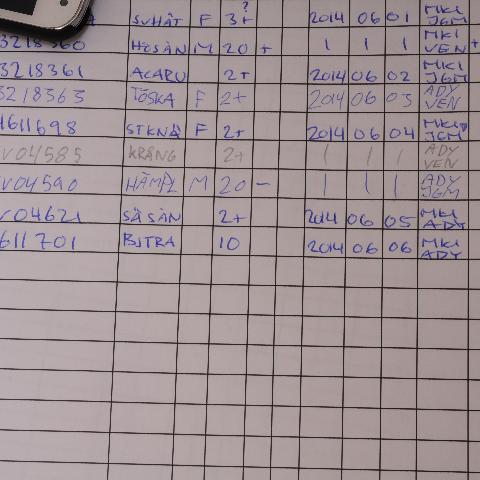 SVHÄT F 3+ ? 2014 06 01 MKI JGM
3218360 HÖSÄN M 20 + | | | MKI VEN +
3218361 ACARU 2+ 2014 06 02 MKI JGM
3218363 TÖSKA F 2+ 2014 06 03 ADY VEN
1611698 STKNÄ F 2+ 2014 06 04 MKI JGM
V04585 KRÄNG 2+ | | | ADY VEN
V04590 M 20 - | | | ADY JGM
V04621 SÄSÄN 2+ 2014 06 05 MKI ADY
611701 BJTRA 10 2014 06 06 MKI ADY